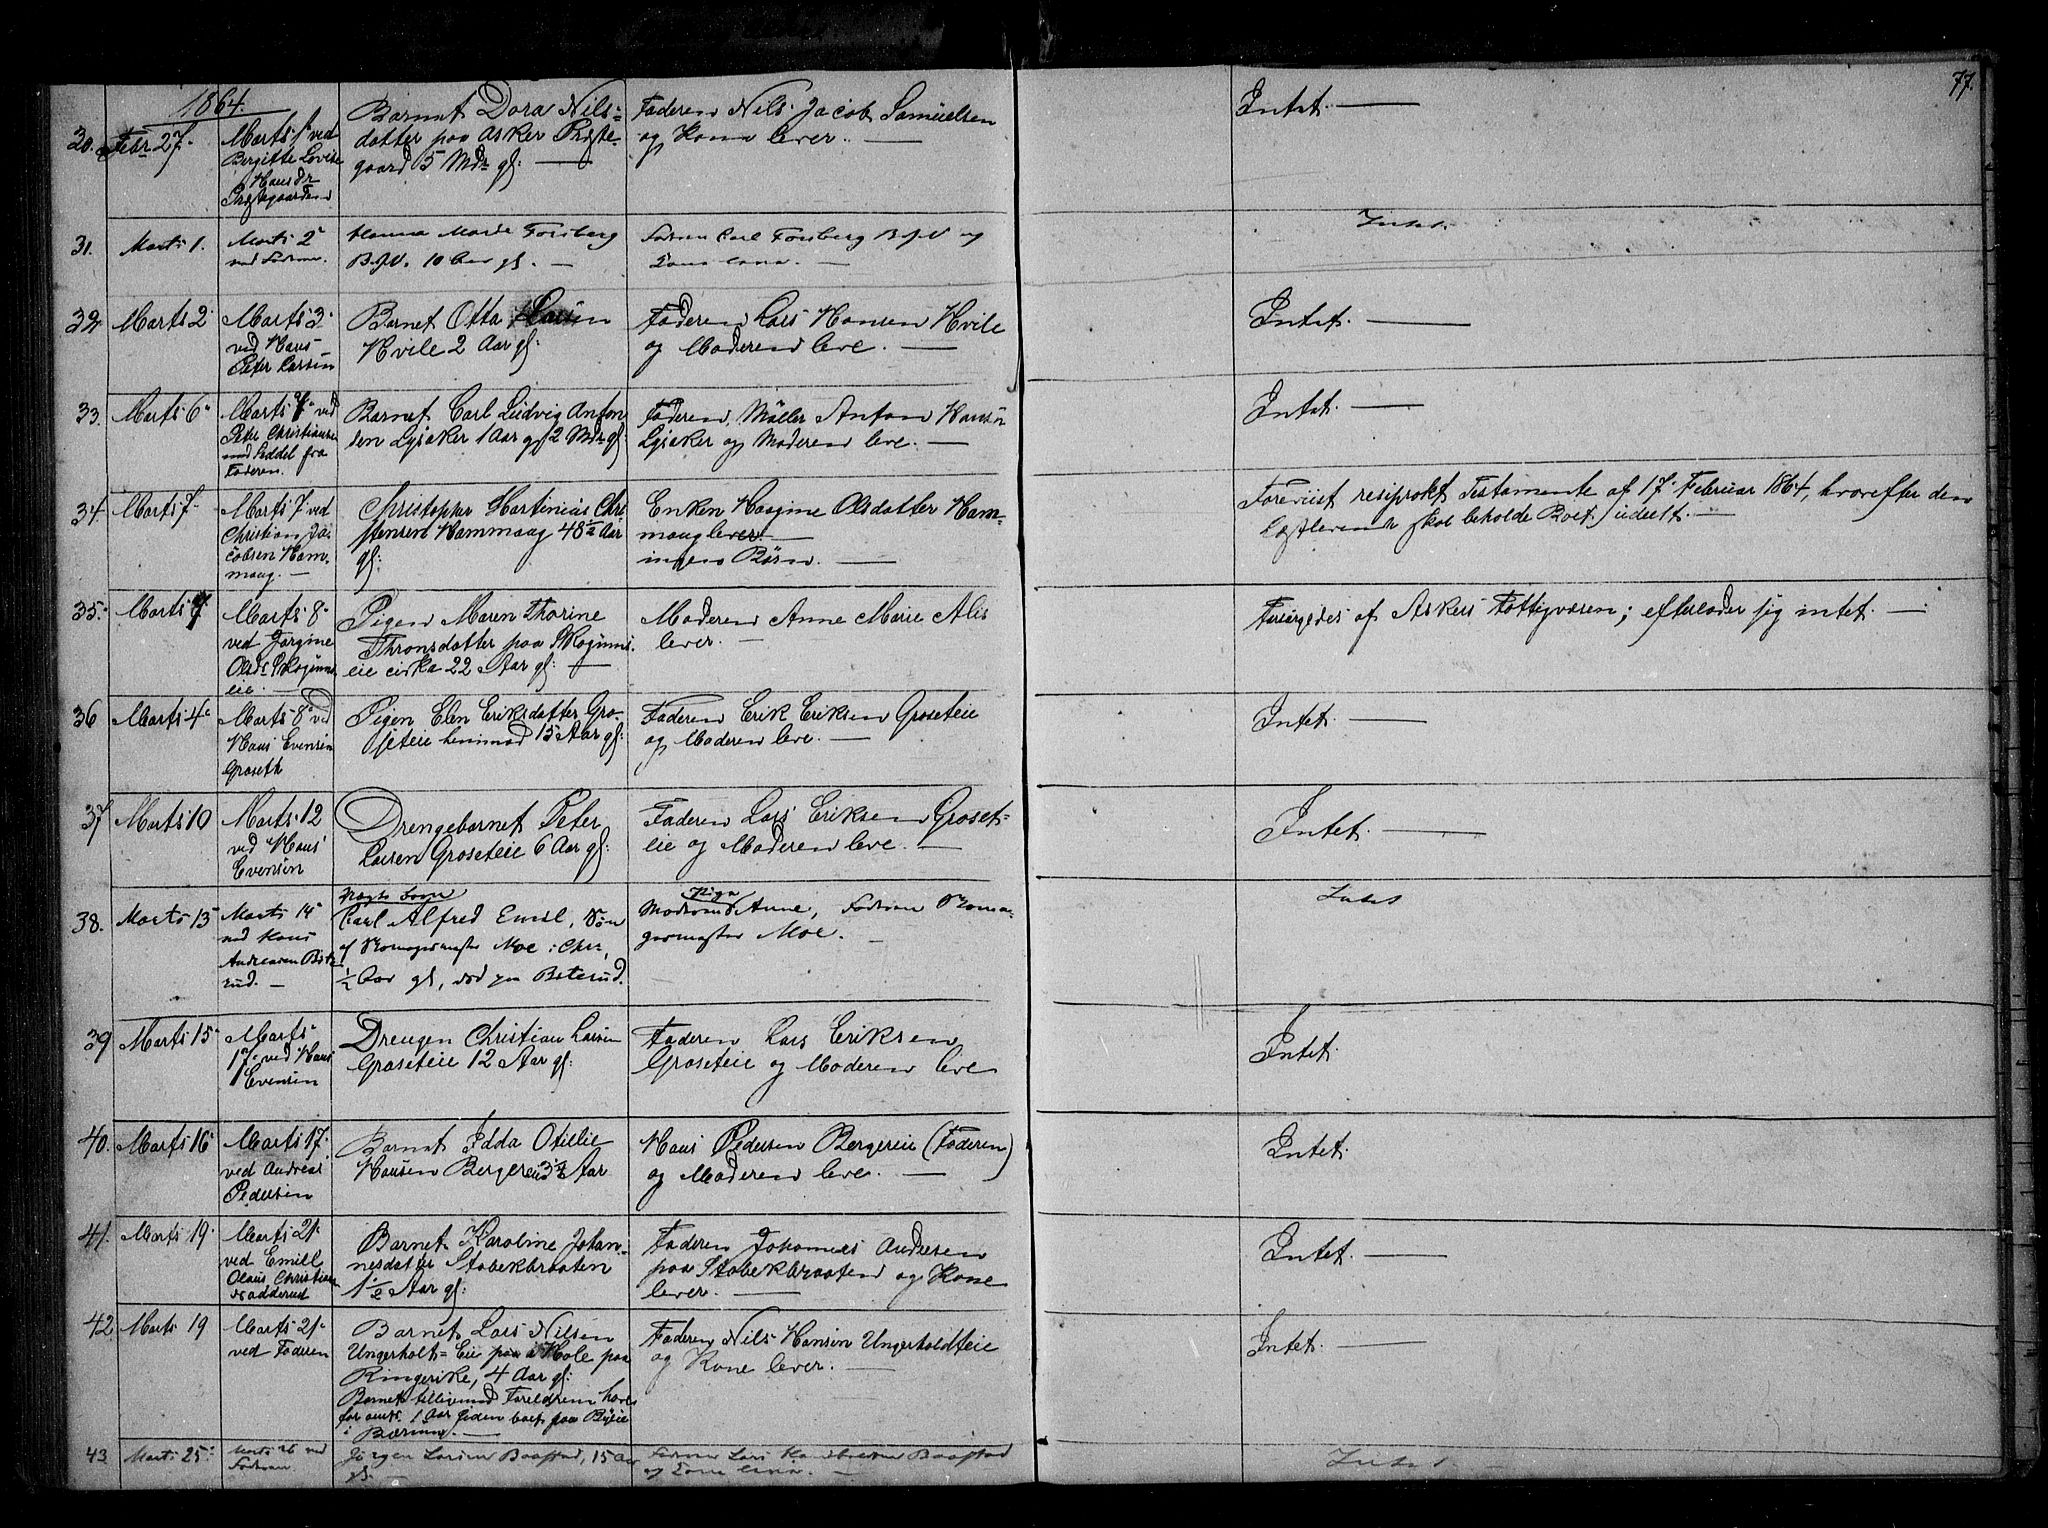 77.
1864.
20. Febr 27. Marts 1 ved Bergitte Lovise Hansdr Præstegaarden
Barnet Dora Nils-
datter paa Asker Præste-
gaard 5 Mdr gl:
Faderen Nils Jacob Samuelsen
og Kone lever.
Intet.
31. Marts 1. Marts 2 ved Faderen.
Hanna Marie Forsberg
10 Aar gl.
Faderen Carl Forsberg og
Kone leve.
Intet.
32. Marts 2. Marts 3. ved Hans Peter Larsen
Barnet Otta Larsen
Hvile 2 Aar gl:
Faderen Lars Hansen Hvile
og Moderen leve.
Intet.
33. Marts 6. Marts 7 ved Peter Christiansen med Seddel fra Faderen.
Barnet Carl Ludvig Anton-
sen Lysaker 1 Aar og 2 Mdr gl:
Faderen Møller Anton Hansen
Lysaker og Moderen leve.
Intet.
34. Marts 7. Marts 7 ved Christian Jacobsen Hammaug.
Christopher Martinius Chri-
stensen Hammaug 48½ Aar
gl:
Enken Olsdatter Ham-
maug lever.
ingen Børn.
Foreviist resiprokt Testamente af 17. Februar 1864, hvorefter den
Længstlevende skal beholde Boet udeelt.
35. Marts 7. Marts 8. ved Jørgine Olsdr Skoginneie.
Pigen Maren Thorine
Thronsdatter paa
eie cirka 22 Aar gl:
Moderen Anne Marie
lever.
Forsørgedes af Askers Fattigvæsen; efterlader sig intet.
36. Marts 4. Marts 8. ved Hans Evensen Groseth
Pigen Elen Eriksdatter Gro-
seteie 15 Aar gl:
Faderen Erik Eriksen Groseteie
og Moderen leve.
Intet.
37. Marts 10. Marts 12 ved Hans Evensen
Drengebarnet Peter
Larsen Groseteie 6 Aar gl:
Faderen Lars Eriksen Groset-
eie og Moderen leve.
Intet.
38. Marts 13. Marts 14 ved Hans Andreasen Biterud.
Carl Alfred Emil, Søn
af Moe i Chra,
½ Aar gl, død paa Biterud.
Moderen Pige Anne, Faderen
Moe.
Intet
39. Marts 15. Marts 17. ved Hans Evensen
Drengen Christian Larsen
Groseteie 12 Aar gl:
Faderen Lars Eriksen
Groseteie og Moderen leve
Intet.
40. Marts 16. Marts 17. ved Andreas Pedersen
Barnet Idda Otillie
Hansen Bergereie 3½ Aar
Hans Pedersen Bergereie (Faderen)
og Moderen leve.
Intet.
41. Marts 19. Marts 21. ved Emill Olaus Christian Nadderud
Barnet Karoline Johan-
nesdatter Stabekbraaten
1½ Aar gl:
Faderen Johannes Andersen
paa Stabekbraaten og Kone
lever.
Intet.
42. Marts 19. Marts 21. ved Faderen
Barnet Lars Nilsen
Ungerholt-Eie paa Hole paa
Ringerike, 4 Aar gl:
Barnet tilligemed Foreldrene have
for omtr. 1 Aar siden boet paa
i Bærum.
Faderen Nils Hansen Ungerholdteie
og Kone lever.
Intet.
43. Marts 25. Marts 26 ved Faderen
Jørgen Larsen Baastad, 15 Aar
gl.
Faderen Lars Baastad
og Kone leve.
Intet.